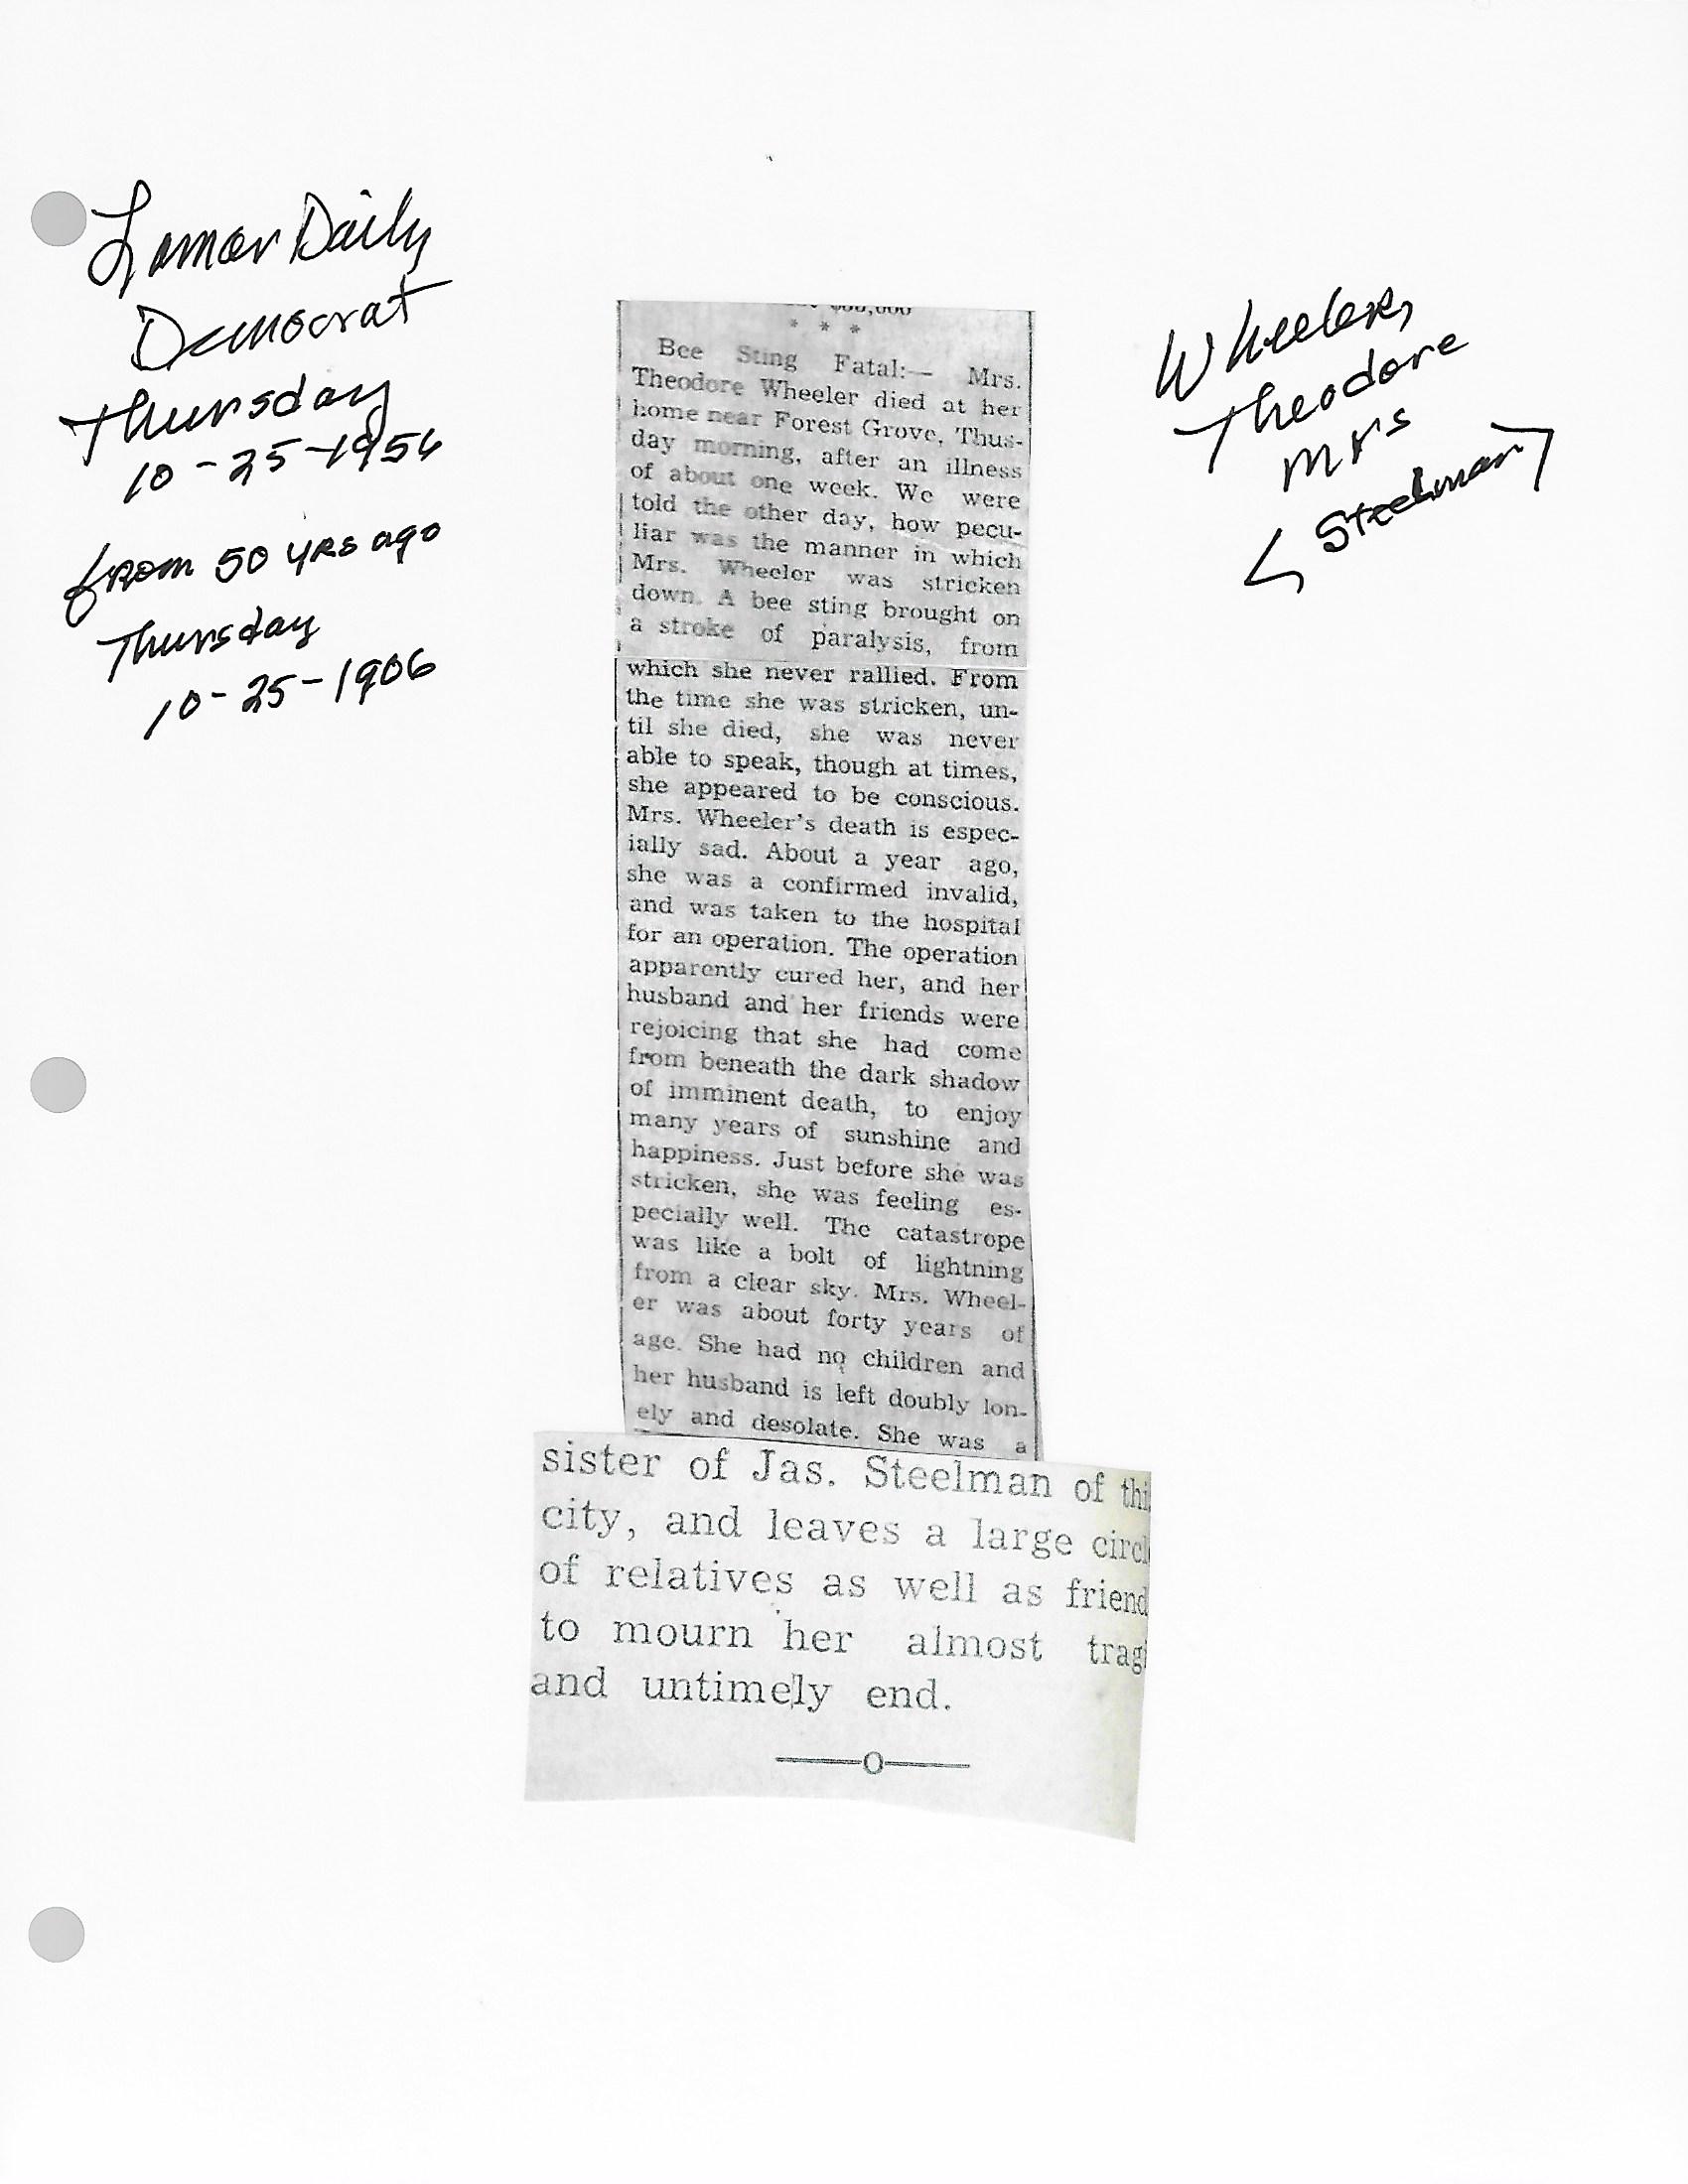 Lamar Daily
Democrat
Thursday
10-25-1956
from 50 yrs ago
Thursday
10-25-1906
Wheeler,
Theodore
Mrs
< Steelman >
* * *
Bee Sting Fatal:— Mrs.
Theodore Wheeler died at her
home near Forest Grove, Thus-
day morning, after an illness
of about one week. We were
told the other day, how pecu-
liar was the manner in which
Mrs. Wheeler was stricken
down. A bee sting brought on
a stroke of paralysis, from
which she never rallied. From
the time she was stricken, un-
til she died, she was never
able to speak, though at times,
she appeared to be conscious.
Mrs. Wheeler's death is espec-
ially sad. About a year ago,
she was a confirmed invalid,
and was taken to the hospital
for an operation. The operation
apparently cured her, and her
husband and her friends were
rejoicing that she had come
from beneath the dark shadow
of imminent death, to enjoy
many years of sunshine and
happiness. Just before she was
stricken, she was feeling es-
pecially well. The catastrope
was like a bolt of lightning
from a clear sky. Mrs. Wheel-
er was about forty years of
age. She had no children and
her husband is left doubly lon-
ely and desolate. She was a
sister of Jas. Steelman of thi
city, and leaves a large circl
of relatives as well as friend
to mourn her almost tragi
and untimely end.
——O——